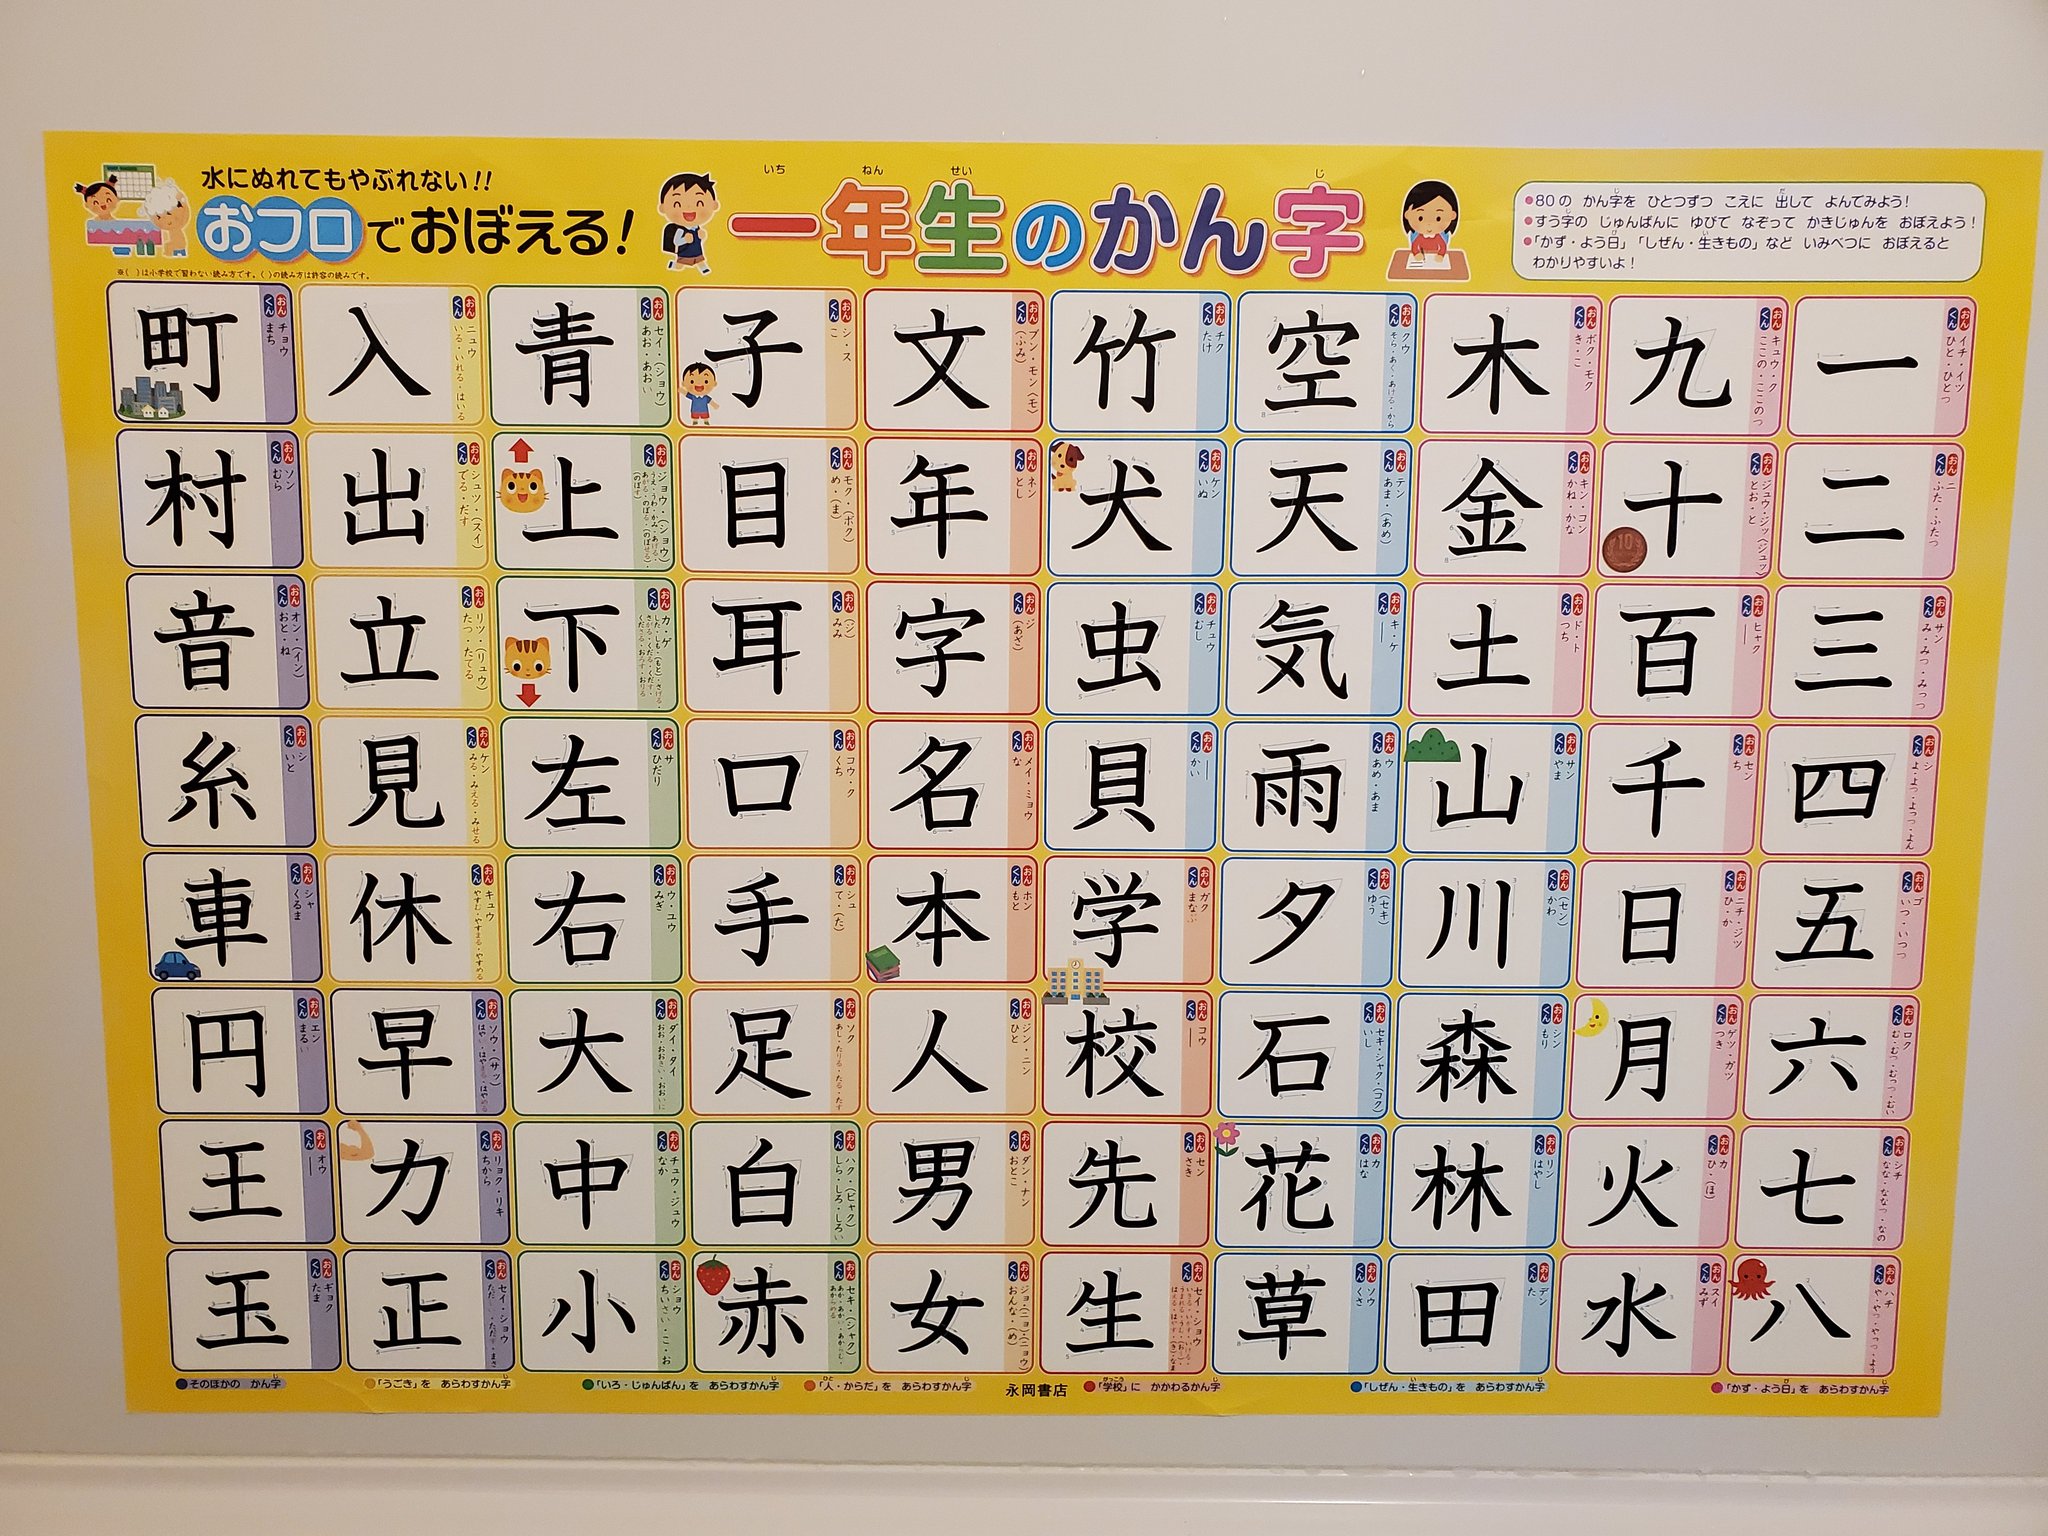 水にぬれてもやぶれない!!
おフロでおぼえる!
※( )は小学校で習わない読み方です。〈 〉の読み方は許容の読みです。
いち ねん せい じ
一年生のかん字
●80の かん字を ひとつずつ こえに 出して よんでみよう!
●すう字の じゅんばんに ゆびで なぞって かきじゅんを おぼえよう!
●「かず・よう日」「しぜん・生きもの」など いみべつに おぼえると
わかりやすいよ!
一
おん イチ・イツ
くん ひと・ひとつ
二
おん ニ
くん ふた・ふたつ
三
おん サン
くん み・みつ・みっつ
四
おん シ
くん よ・よつ・よっつ・よん
五
おん ゴ
くん いつ・いつつ
六
おん ロク
くん む・むつ・むっつ・むい
七
おん シチ
くん なな・ななつ・なの
八
おん ハチ
くん や・やつ・やっつ・よう
九
おん キュウ・ク
くん ここの・ここのつ
十
おん ジュウ・ジッ〈ジュッ〉
くん とお・と
百
おん ヒャク
くん ―
千
おん セン
くん ち
日
おん ニチ・ジツ
くん ひ・か
月
おん ゲツ・ガツ
くん つき
火
おん カ
くん ひ・(ほ)
水
おん スイ
くん みず
木
おん ボク・モク
くん き・こ
金
おん キン・コン
くん かね・かな
土
おん ド・ト
くん つち
山
おん サン
くん やま
川
おん (セン)
くん かわ
森
おん シン
くん もり
林
おん リン
くん はやし
田
おん デン
くん た
空
おん クウ
くん そら・あく・あける・から
天
おん テン
くん あま・(あめ)
気
おん キ・ケ
くん ―
雨
おん ウ
くん あめ・あま
夕
おん (セキ)
くん ゆう
石
おん セキ・シャク・(コク)
くん いし
花
おん カ
くん はな
草
おん ソウ
くん くさ
竹
おん チク
くん たけ
犬
おん ケン
くん いぬ
虫
おん チュウ
くん むし
貝
おん ―
くん かい
学
おん ガク
くん まなぶ
校
おん コウ
くん ―
先
おん セン
くん さき
生
おん セイ・ショウ
くん
文
おん ブン・モン
くん (ふみ)
年
おん ネン
くん とし
字
おん ジ
くん (あざ)
名
おん メイ・ミョウ
くん な
本
おん ホン
くん もと
人
おん ジン・ニン
くん ひと
男
おん ダン・ナン
くん おとこ
女
おん ジョ・(ニョ)・(ニョウ)
くん おんな・(め)
子
おん シ・ス
くん こ
目
おん モク・(ボク)
くん め・(ま)
耳
おん (ジ)
くん みみ
口
おん コウ・ク
くん くち
手
おん シュ
くん て・(た)
足
おん ソク
くん あし・たりる・たる・たす
白
おん ハク・(ビャク)
くん しら・しろ・しろい
赤
おん セキ・(シャク)
くん あか・あかい・あからむ・あからめる
青
おん セイ・(ショウ)
くん あお・あおい
上
おん ジョウ・(ショウ)
くん うえ・うわ・かみ・あげる・あがる・のぼる・(のぼせる)・(のぼす)
下
おん カ・ゲ
くん した・しも・(もと)・さげる・さがる・くだる・くだす・くださる・おろす・おりる
左
おん サ
くん ひだり
右
おん ウ・ユウ
くん みぎ
大
おん ダイ・タイ
くん おお・おおきい・おおいに
中
おん チュウ・ジュウ
くん なか
小
おん ショウ
くん ちいさい・こ・お
入
おん ニュウ
くん いる・いれる・はいる
出
おん シュツ・(スイ)
くん でる・だす
立
おん リツ・(リュウ)
くん たつ・たてる
見
おん ケン
くん みる・みえる・みせる
休
おん キュウ
くん やすむ・やすまる・やすめる
早
おん ソウ・(サッ)
くん はやい・はやまる・はやめる
力
おん リョク・リキ
くん ちから
正
おん セイ・ショウ
くん ただしい・ただす・まさ
町
おん チョウ
くん まち
村
おん ソン
くん むら
音
おん オン・(イン)
くん おと・ね
糸
おん シ
くん いと
車
おん シャ
くん くるま
円
おん エン
くん まるい
王
おん オウ
くん ―
玉
おん ギョク
くん たま
10
●そのほかの かん字
●「うごき」を あらわすかん字
●「いろ・じゅんばん」を あらわすかん字
●「人・からだ」を あらわすかん字
永岡書店
●「学校」に かかわるかん字
●「しぜん・生きもの」を あらわすかん字
●「かず・よう日」を あらわすかん字